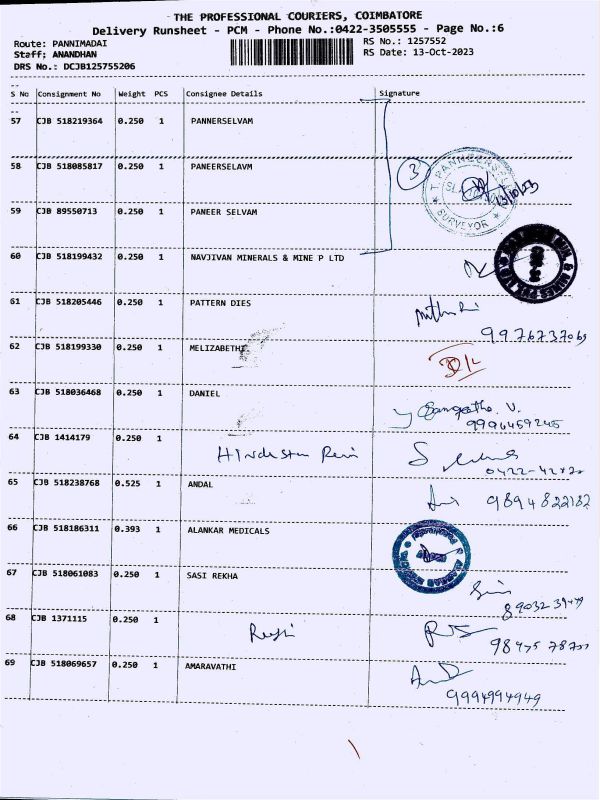 THE PROFESSIONAL COURIERS, COIMBATORE
Delivery Runsheet - PCM - Phone No.:0422-3505555 - Page No.:6
Route: PANNIMADAI
RS No.: 1257552
Staff; ANANDHAN
RS Date: 13-Oct-2023
DRS No.: DCJB125755206
S No Consignment No Weight PCS Consignee Details Signature
57 CJB 518219364 0.250 1 PANNERSELVAM
58 CJB 518085817 0.250 1 PANEERSELAVM
3
SURVEYOR
13/10/23
59 CJB 89550713 0.250 1 PANEER SELVAM
60 CJB 518199432 0.250 1 NAVJIVAN MINERALS & MINE P LTD
61 CJB 518205446 0.250 1 PATTERN DIES
9976737069
62 CJB 518199330 0.250 1 MELIZABETHE
63 CJB 518036468 0.250 1 DANIEL
Sangeetha. V.
9996459245
64 CJB 1414179 0.250 1
Hindustan
65 CJB 518238768 0.525 1 ANDAL
9894822182
66 CJB 518186311 0.393 1 ALANKAR MEDICALS
67 CJB 518061083 0.250 1 SASI REKHA
68 CJB 1371115 0.250 1
69 CJB 518069657 0.250 1 AMARAVATHI
9994994949